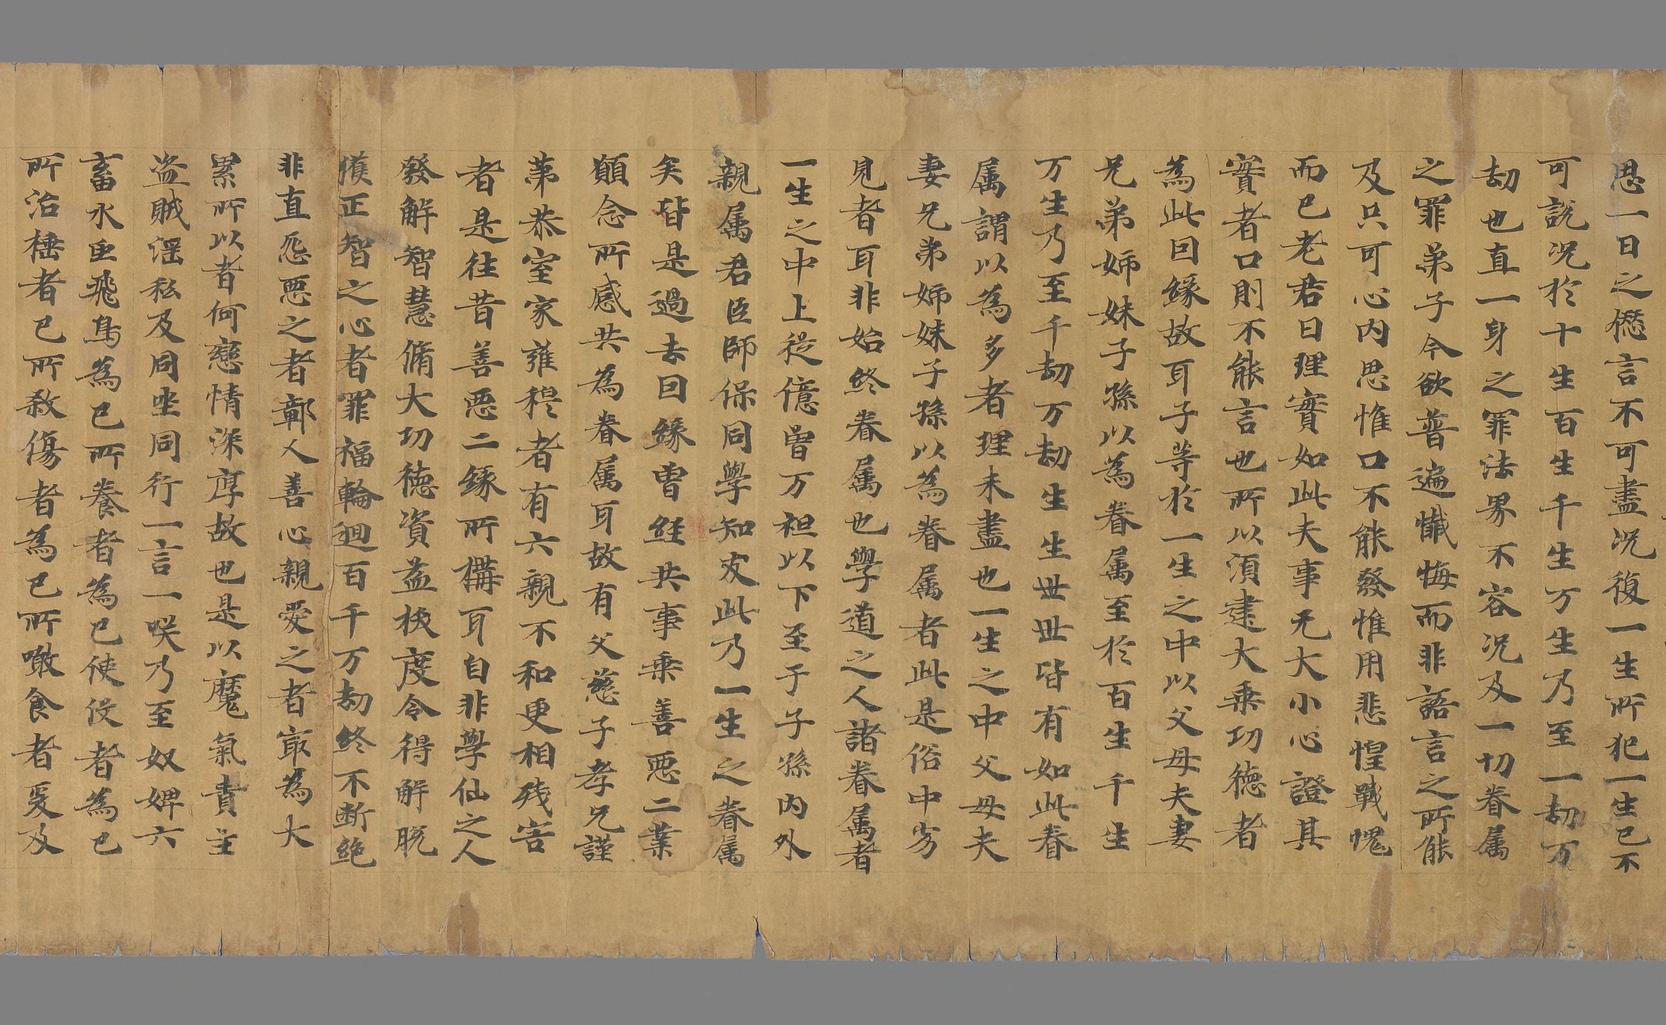 思一日之愆言不可盡况復一生所犯一生已不
可說况於十生百生千生万生乃至一劫万
劫也直一身之罪法界不容况及一切眷属
之罪弟子今欲普遍懺悔而非語言之所能
及只可心内思惟口不能發惟用悲惶戰愧
而已老君曰理實如此夫事无大小心證其
實者口則不能言也所以須建大乘功德者
為此因緣故耳子等於一生之中以父母夫妻
兄弟姉妹子孫以為眷属至於百生千生
万生乃至千劫万劫生生世世皆有如此眷
属謂以為多者理未盡也一生之中父母夫
妻兄弟姉妹子孫以為眷属者此是俗中旁
見者耳非始終眷属也學道之人諸眷属者
一生之中上從億曽万祖以下至于子孫内外
親属君臣師保同學知友此乃一生之眷属
矣皆是過去因緣曽經共事乘善惡二業
願念所感共為眷属耳故有父慈子孝兄謹
苐恭室家雍穆者有六親不和更相残害
者是往昔善惡二緣所構耳自非學仙之人
發解智慧脩大功德資益拔度令得解脱
獲正智之心者罪福輪迴百千万劫終不断絶
非直怨惡之者鄣人善心親愛之者㝡為大
累所以者何戀情深厚故也是以魔氣責主
盗賊滛私及同坐同行一言一咲乃至奴婢六
畜水虫飛鳥為已所養者為已使役者為已
所治棰者已所敘傷者為已所噉食者爰及